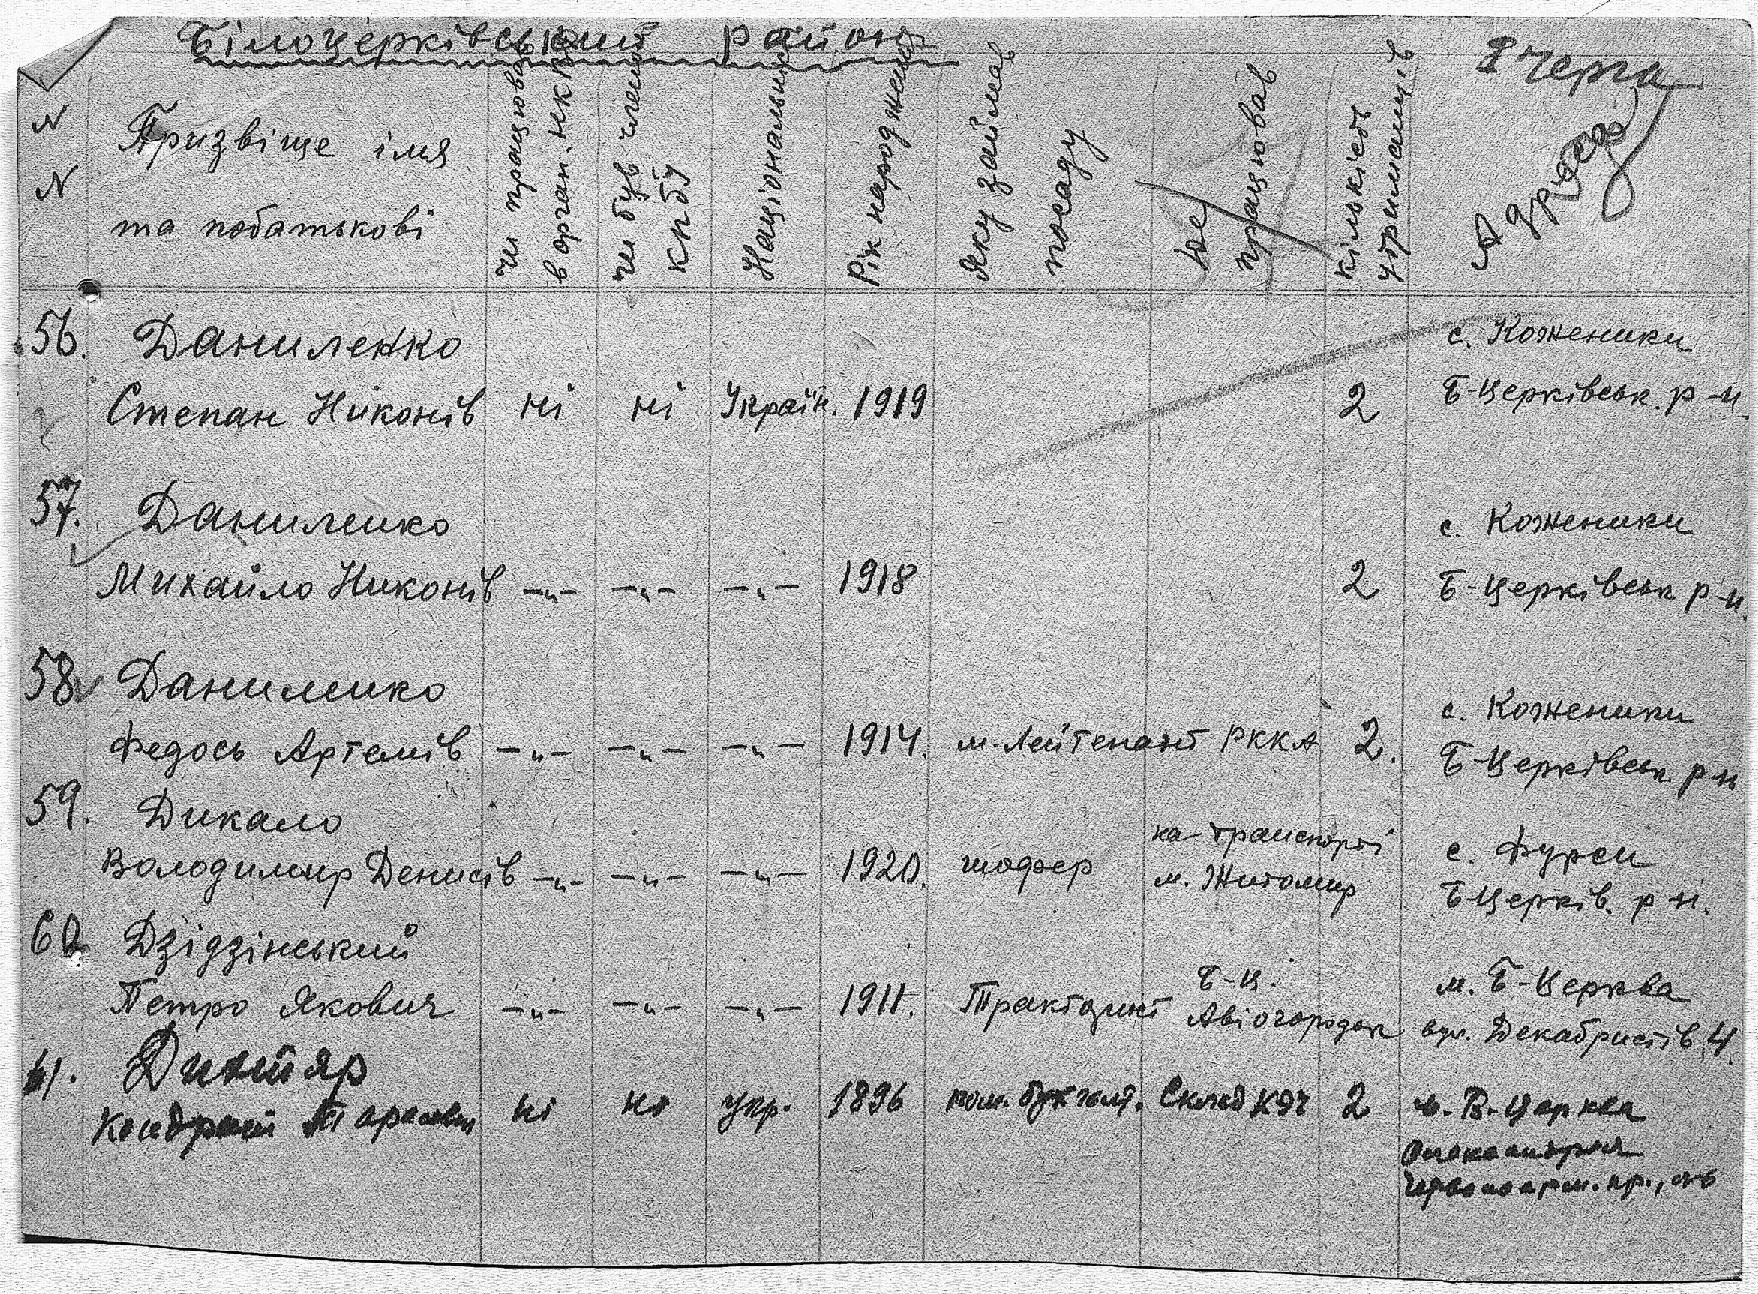 Білоцерківський район
І Черга
N
N
Призвіще імя
та побатькові
чи працював
в орган. НКВС
чи був член
КПбУ
Національн
Рік народження
Яку займав
посаду
де
працював
кількість
утриманців
Адреса
56. Даниленко с. Коженики
Степан Никонів ні ні Україн. 1919 2 Б-Церківськ. р-н.
57. Даниленко с. Коженики
Михайло Никонів —„— —„— —„— 1918 2 Б-Церківськ р-н.
58 Даниленко с. Коженики
Федось Артемів —„— —„— —„— 1914. м. Лейтенант РККА 2. Б-Церківськ р-н
59. Дикало на транспорті с. Фурси
Володимир Денисів —„— —„— —„— 1920. шофер м. Житомир Б-Церків. р-н.
60 Дзідзінський Б-Ц. м. Б-Церква
Петро Якович —„— —„— —„— 1911. Тракторист Авіогородок вул. Декабристів 4.
61. Дихтяр
Кондрат Тарасович ні ні укр. 1896 пом. бухгалт. Склад КЭЧ 2 м. Б-Церква